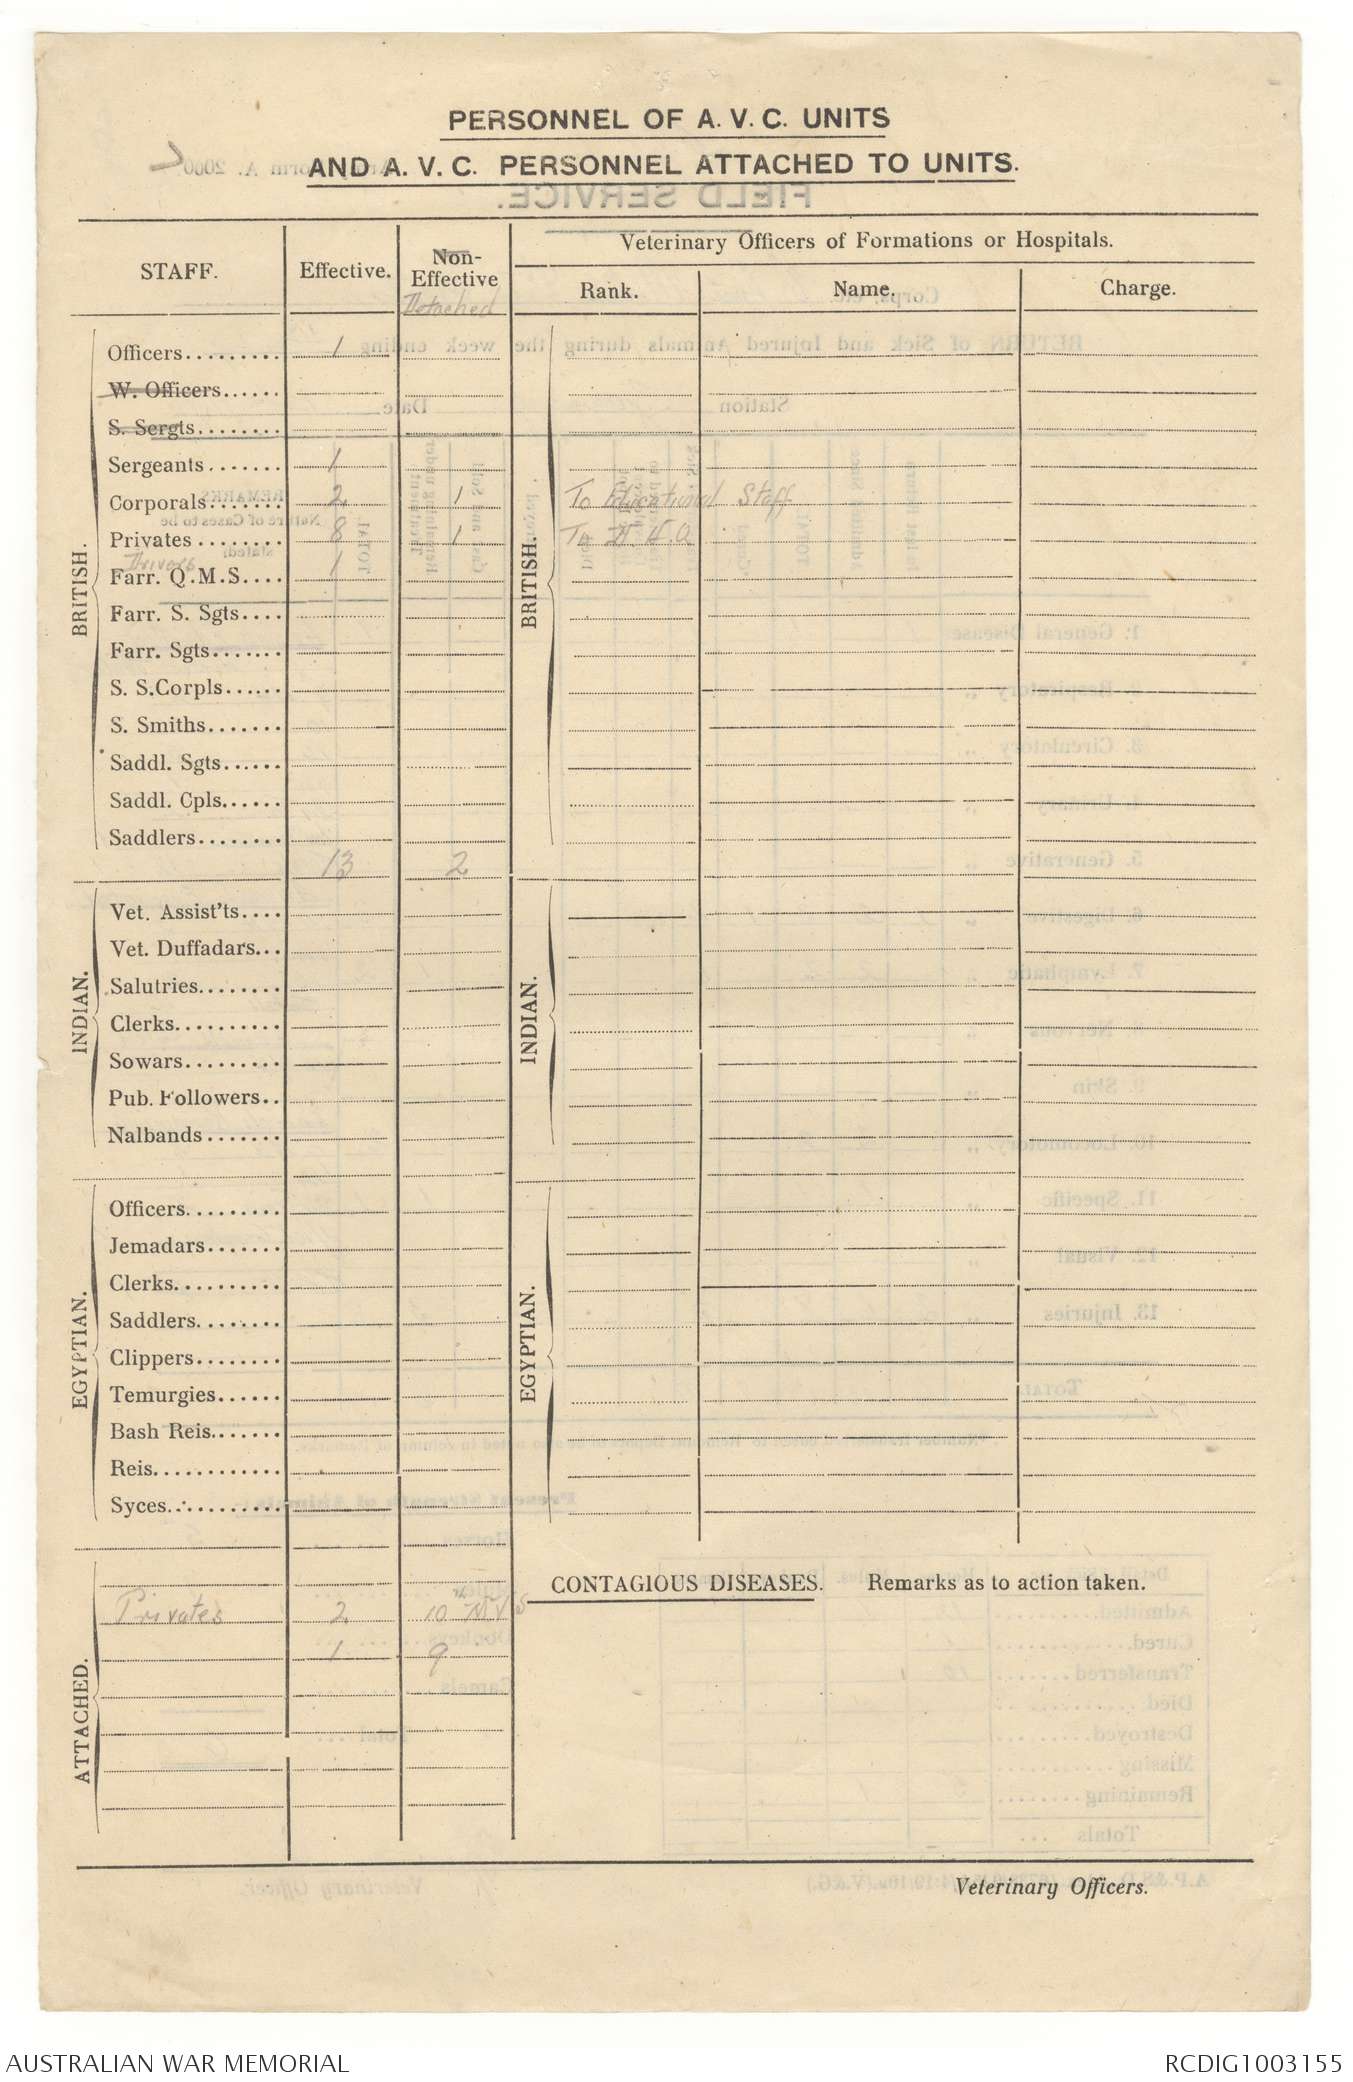 PERSONNEL OF A. V. C. UNITS
AND A. V. C. PERSONNEL ATTACHED TO UNITS.
STAFF. Effective. Non-Effective Detached
Veterinary Officers of Formations or Hospitals.
Rank. Name. Charge.
BRITISH.
Officers......... 1
W. Officers......
S. Sergts........
Sergeants ....... 1
Corporals....... 2 1 To Educational Staff
Privates ........ 8 1 To D H.Q
Drivers 1
Farr. Q.M.S....
Farr. S. Sgts....
Farr. Sgts.......
S. S.Corpls......
S. Smiths.......
Saddl. Sgts......
Saddl. Cpls......
Saddlers........
13 2
BRITISH.
INDIAN.
Vet. Assist'ts....
Vet. Duffadars...
Salutries........
Clerks..........
Sowars.........
Pub. Followers..
Nalbands.......
INDIAN.
EGYPTIAN.
Officers.........
Jemadars.......
Clerks..........
Saddlers........
Clippers........
Temurgies......
Bash Reis.......
Reis............
Syces...........
EGYPTIAN.
ATTACHED.
Privates 2 10th M V S
1 9
CONTAGIOUS DISEASES. Remarks as to action taken.
Veterinary Officers.
AUSTRALIAN WAR MEMORIAL
RCDIG1003155